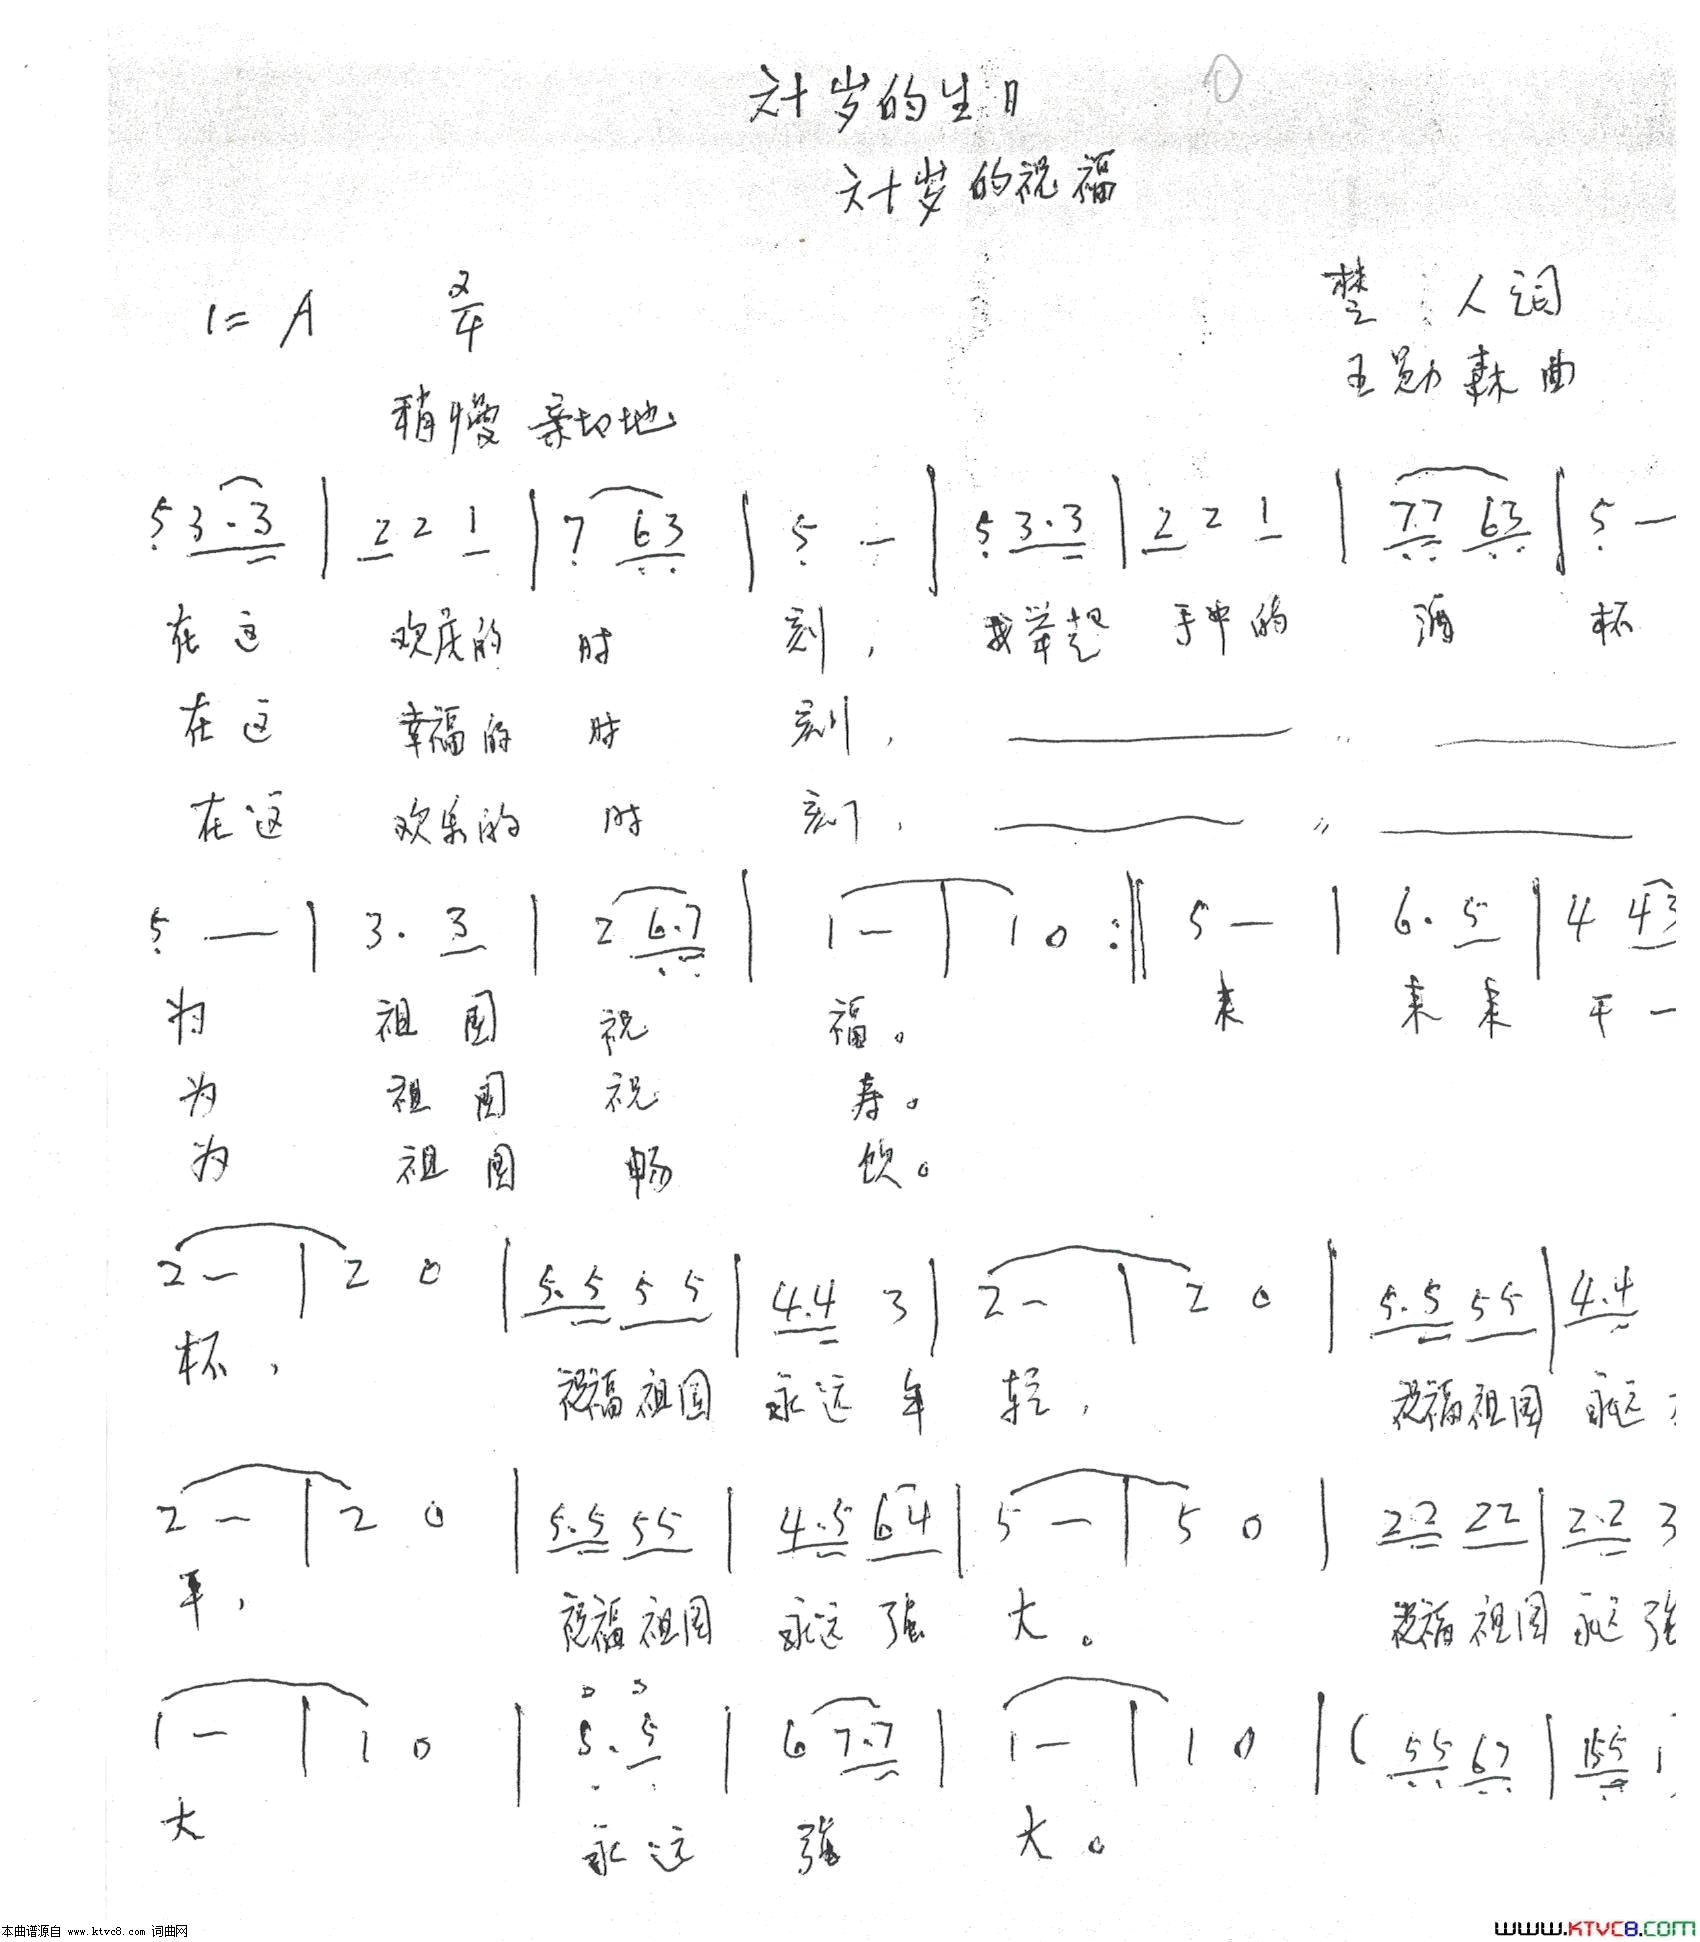 六十岁的生日
六十岁的祝福
1=A 2/4 楚 人词
王勋 曲
稍慢 亲切地
5 3.3 | 2 2 1 | 7 63 | 5 — | 5 3.3 | 2 2 1 | 77 63 | 5 —
在这 欢庆的 时 刻, 我举起 手中的 酒 杯
在这 幸福的 时 刻, ——— 〃 ———
在这 欢乐的 时 刻, ——— 〃 ———
5 — | 3. 3 | 2 6.7 | 1 — | 1 0 :‖ 5 — | 6. 5 | 4 43
为 祖国 祝 福。 来 来来 干一
为 祖国 祝 寿。
为 祖国 畅 饮。
2 — | 2 0 | 5.5 5 5 | 4.4 3 | 2 — | 2 0 | 5.5 55 | 4.4
杯, 祝福祖国 永远年 轻, 祝福祖国 永远
2 — | 2 0 | 5.5 55 | 4.5 64 | 5 — | 5 0 | 22 22 | 2.2 3
平, 祝福祖国 永远强 大。 祝福祖国 永远强
1 — | 1 0 | 5. 5 | 6 7.7 | 1 — | 1 0 | ( 55 67 | 155 1
大 永远 强 大。
本曲谱源自 www.ktvc8.com 词曲网
WWW.KTVC8.COM